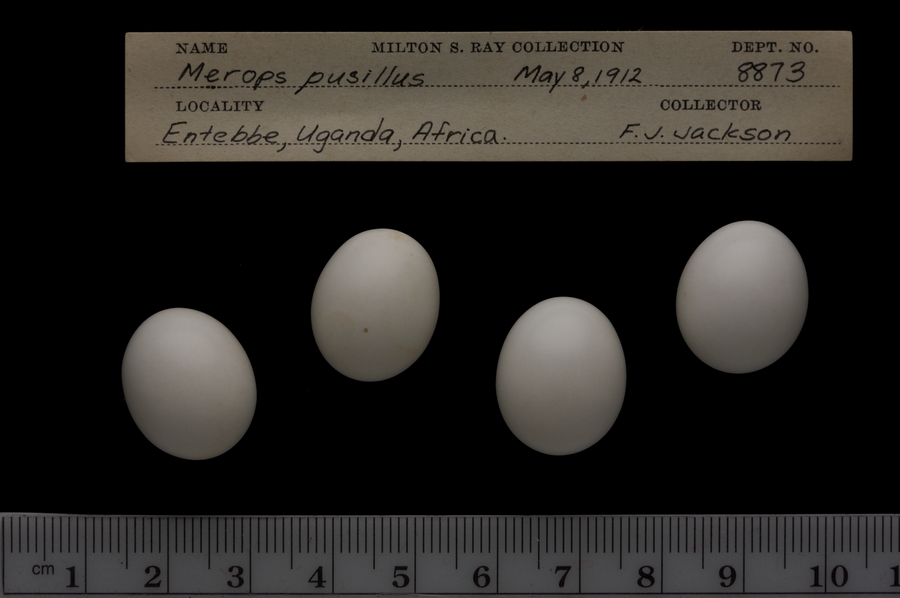 NAME MILTON S. RAY COLLECTION DEPT. NO.
Merops pusillus May 8, 1912 8873
LOCALITY COLLECTOR
Entebbe, Uganda, Africa. F. J. Jackson
cm 1 2 3 4 5 6 7 8 9 10 1